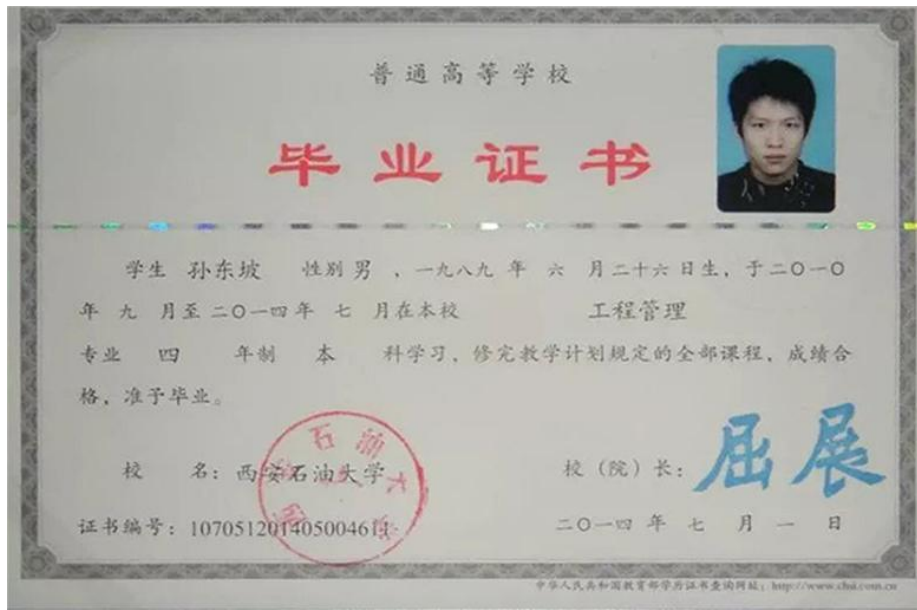 普通高等学校
毕业证书
学生 孙东坡 性别 男 ，一九八九 年 六 月二十六日生，于二〇一〇
年 九 月至二〇一四年 七 月在本校 工程管理
专业 四 年制 本 科学习，修完教学计划规定的全部课程，成绩合
格，准予毕业。
校 名：西安石油大学
校（院）长：屈展
证书编号：107051201405004611
二〇一四 年 七 月 一 日
中华人民共和国教育部学历证书查询网址：http://www.chsi.com.cn